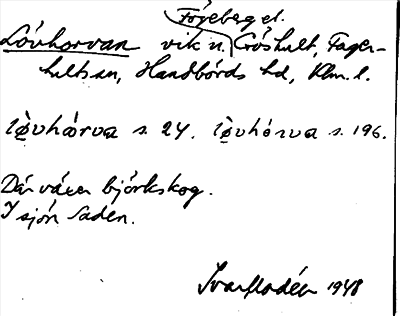 Fågeberg el.
Lövhorvan vik u. Gröshult, Fager-
hults sn, Handbörds hd, Klm. l.
lø̀vhærva s. 24. lø̀vhórva s. 196.
Där växer björkskog.
I sjön Saden.
Ivar Modéer 1948